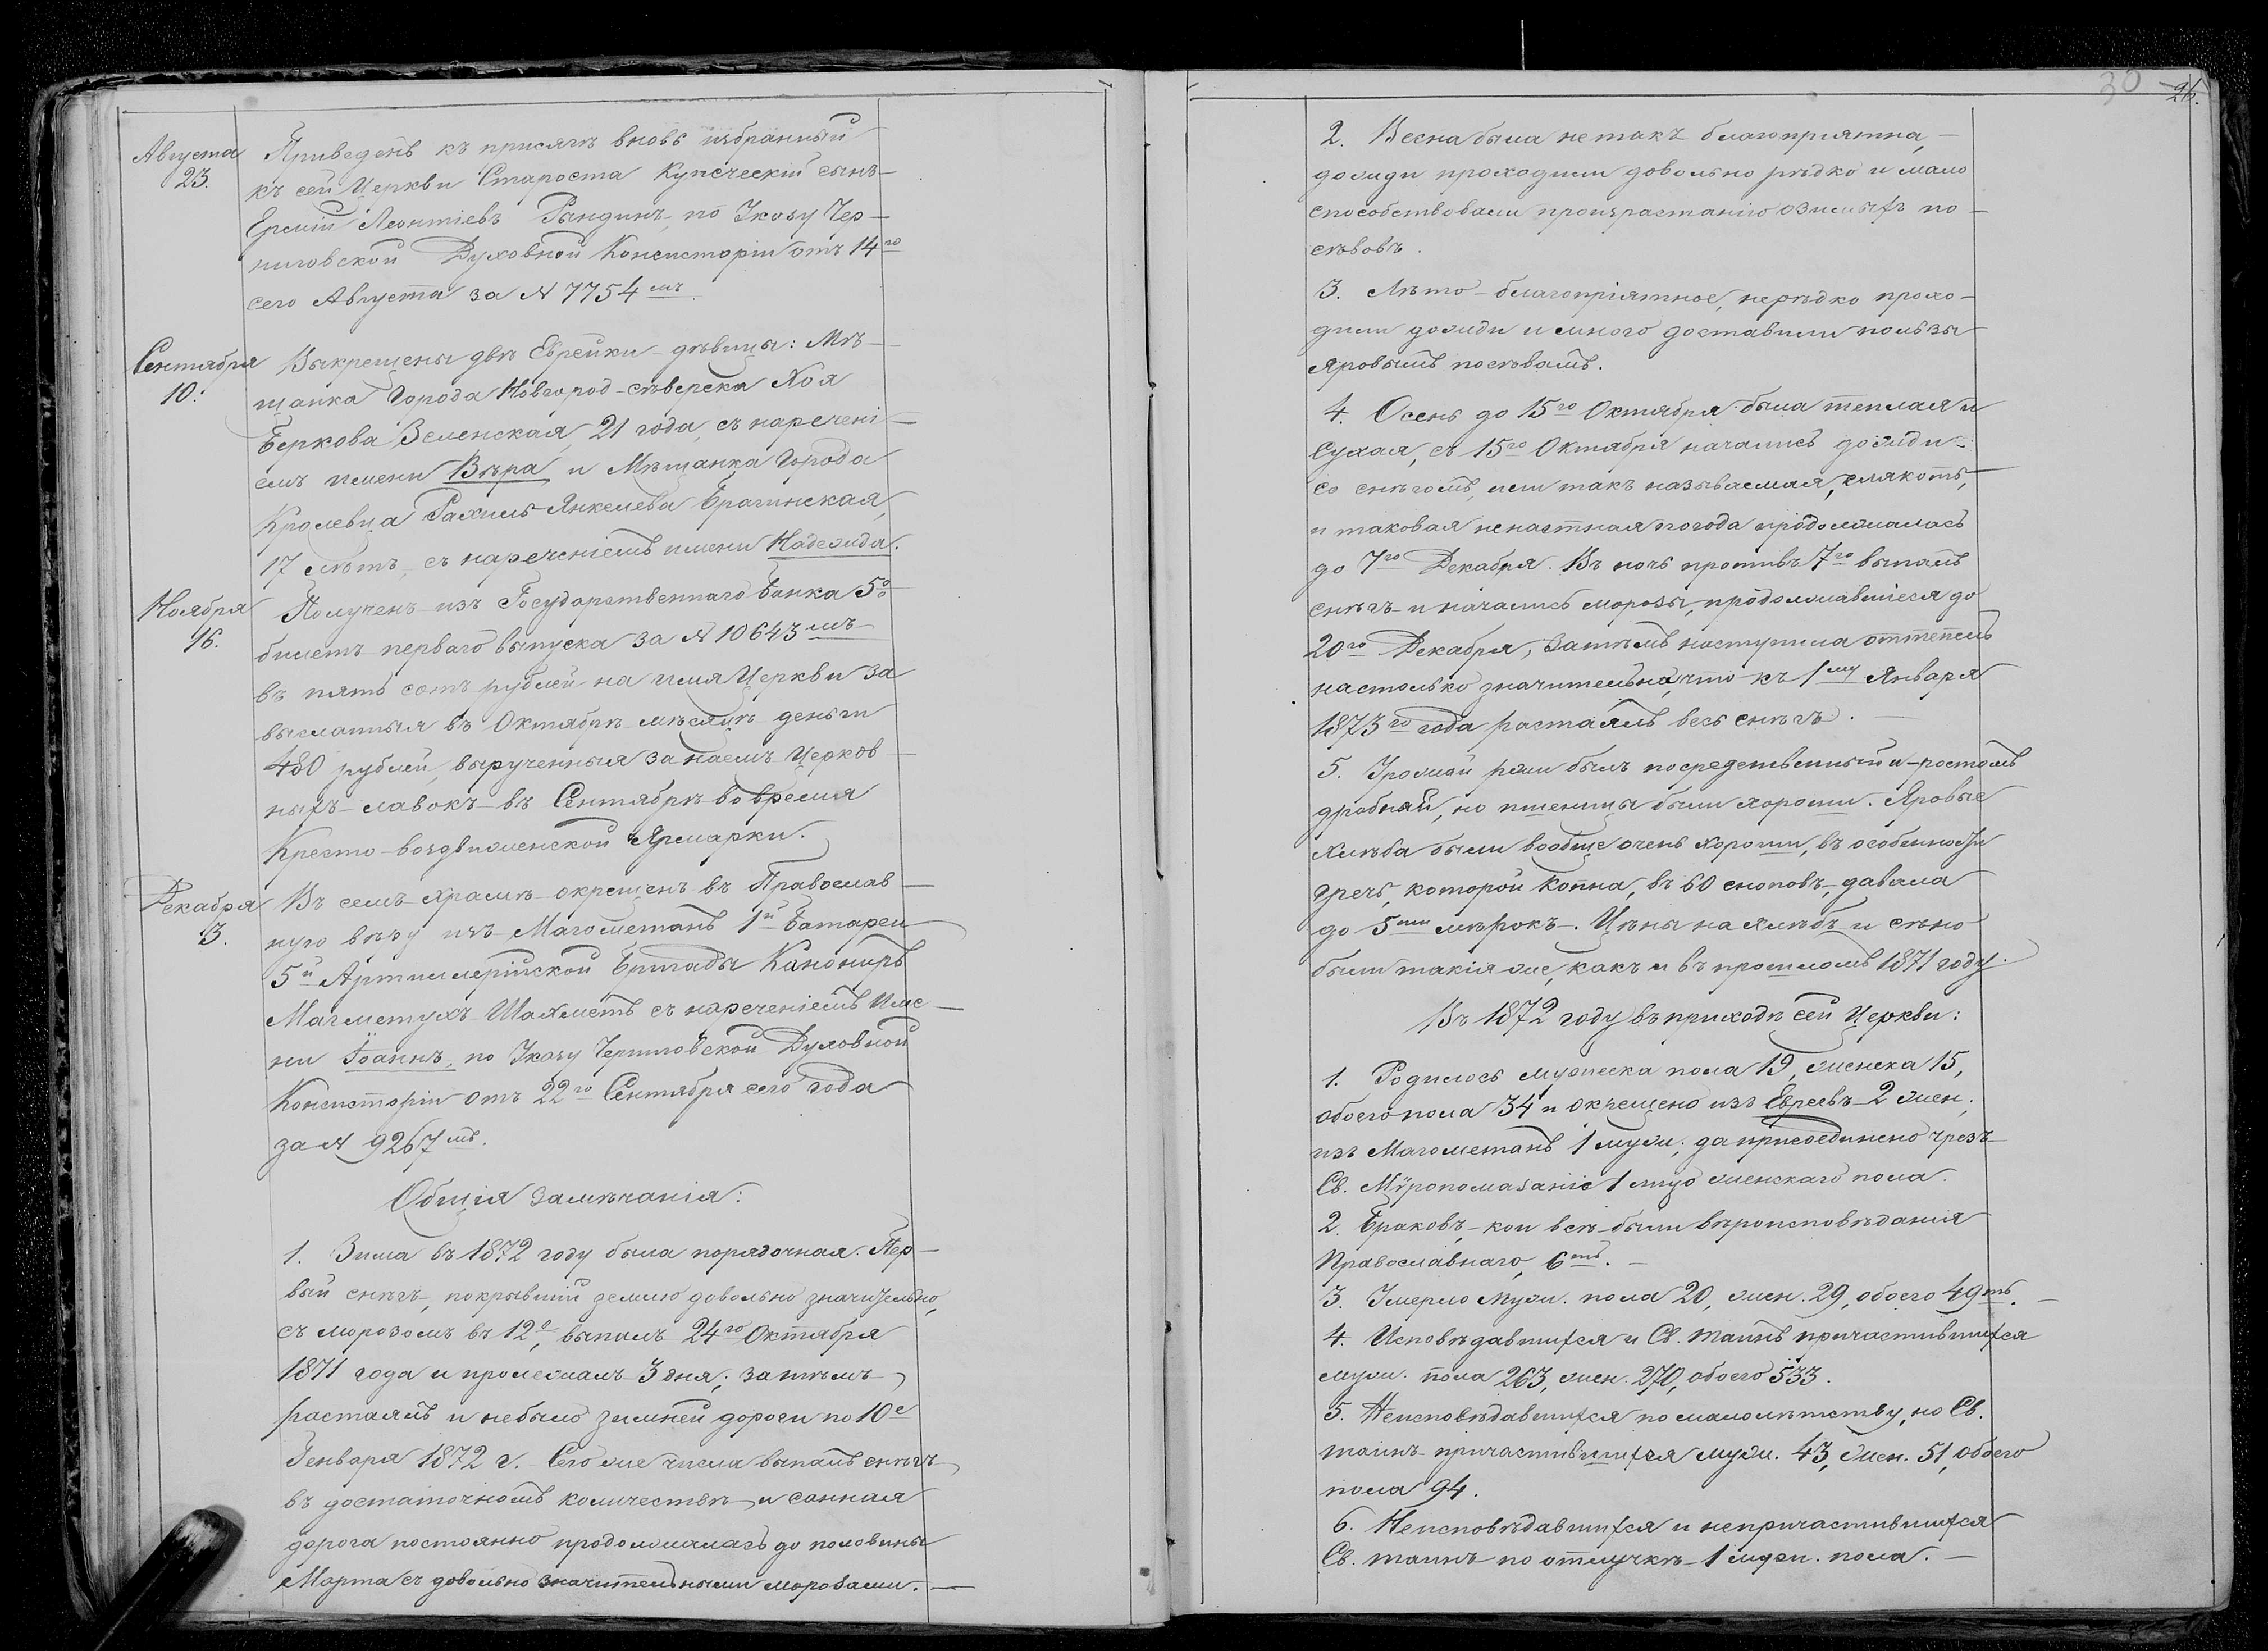 Августа
23.
Приведенъ къ присягѣ вновь избранный
къ сей Церкви Староста Купеческій сынъ
Ермій Леонтіевъ Рындинъ, по Указу Чер-
ниговской Духовной Консисторіи отъ 14го
сего Августа за N 7754мъ.
Сентября
10.
Выкрещены двѣ Еврейки-дѣвицы: Мѣ-
щанка Города Новгород-сѣверска Хоя
Беркова Зеленская, 21 года, съ наречені-
емъ имени Вѣра и Мѣщанка Города
Кролевца Рахиль Янкелева Брагинская,
17 лѣтъ, съ нареченіемъ имени Надежда.
Ноября
16.
Полученъ изъ Государственнаго банка 5%
билетъ перваго выпуска за N 10643мъ
въ пять сотъ рублей на имя Церкви за
высланныя въ Октябрѣ мѣсяцѣ деньги
480 рублей, вырученныя за наемъ Церков
ныхъ лавокъ въ Сентябрѣ во время
Кресто-воздвиженской Ярмарки.
Декабря
3.
Въ семъ храмѣ окрещенъ въ Православ
ную вѣру изъ Магометанъ 1й Батареи
5й Артиллерійской Бригады Канониръ
Магметухъ Шахметъ съ нареченіемъ Име-
ни Іоаннъ, по Указу Черниговской Духовной
Консисторіи отъ 22го Сентября сего года
за N 9267мъ.
Общія замѣчанія:
1. Зима въ 1872 году была порядочная. Пер-
вый снѣгъ, покрывшій землю довольно значительно,
съ морозомъ въ 12°, выпалъ 24го Октября
1871 года и пролежалъ 3 дня; затѣмъ
растаялъ и небыло зимней дороги по 10е
Генваря 1872 г. Сего же числа выпалъ снѣгъ
въ достаточномъ количествѣ и санная
дорога постоянно продолжалась до половины
Марта съ довольно значительными морозами.
30 26.
2. Весна была не такъ благопріятна,
дожди проходили довольно рѣдко и мало
способствовали произрастанію озимыхъ по-
сѣвовъ.
3. Лѣто благопріятное, нерѣдко прохо-
дили дожди и много доставили пользы
Яровымъ посѣвамъ.
4. Осень до 15го Октября была теплая и
Сухая, съ 15го Октября начались дожди
со снѣгомъ, или такъ называемая, слякоть,
и таковая ненастная погода продолжалась
до 7го Декабря. Въ ночь противъ 7го выпалъ
снѣгъ и начались морозы, продолжавшіеся до
20го Декабря, затѣмъ наступила оттепель
настолько значительна, что къ 1му Января
1873го года растаялъ весь снѣгъ.
5. Урожай ржи былъ посредственный и ростомъ
дробный, но пшеницы были хороши. Яровые
хлѣба были вообще очень хороши, въ особенности
гречь, которой копна, въ 60 сноповъ, давала
до 5ти мѣрокъ. Цѣны на хлѣбъ и сѣно
были такія же, какъ и въ прошломъ 1871 году.
Въ 1872 году въ приходѣ сей Церкви:
1. Родилось мужеска пола 19, женска 15,
обоего пола 34 и окрещено изъ Евреевъ 2 жен.
изъ Магометанъ 1 муж; да присоединено чрезъ
Св. Мѵропомазаніе 1 лицо женскаго пола.
2. Браковъ, кои всѣ были вѣроисповѣданія
Православнаго, 6ть.
3. Умерло муж. пола 20, жен. 29, обоего 49ть.
4. Исповѣдавшихся и Св. таинъ причастившихся
муж. пола 263, жен. 270, обоего 533.
5. Неисповѣдавшихся по малолѣтству, но Св.
таинъ причастившихся муж. 43, жен. 51, обоего
пола 94.
6. Неисповѣдавшихся и непричастившихся
Св. таинъ по отлучкѣ 1 муж. пола.